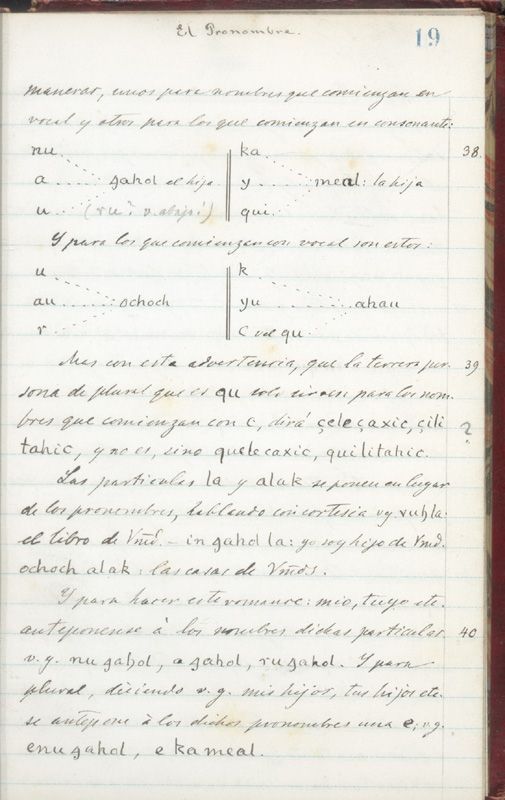 El Pronombre. 19
maneras, unos para nombres que comienzan en
vocal y otros para los que comienzan en consonante:
nu ka 38.
a ..... gahol el hijo. y ..... meal: la hija
u (ru? v. abajo!) qui
Y para los que comienzan con vocal son estos:
u k
au ..... ochoch yu ..... ahau
r C vel qu
Mas con esta advertencia, que la tercera per- 39
sona de plural que es qu solo sirve: para los nom-
bres que comienzan con c, dirá çeleçaxic, çili ?
tahic, y no es, sino quelecaxic, quilitahic.
Las particulas la y alak se ponen en lugar
de los pronombres, hablando con cortesia vg. vuh la:
el libro de Vmd. - in gahol la: yo soy hijo de Vmd.
ochoch alak: las casas de Vmds.
Y para hacer este romance: mio, tuyo etc.
anteponense à los nombres dichas particulas 40
v. g. nu gahol, a gahol, ru gahol. Y para
plural, diciendo v. g. mis hijos, tus hijos etc.
se antepone à los dichos pronombres una e, v.g.
enu gahol, e ka meal.